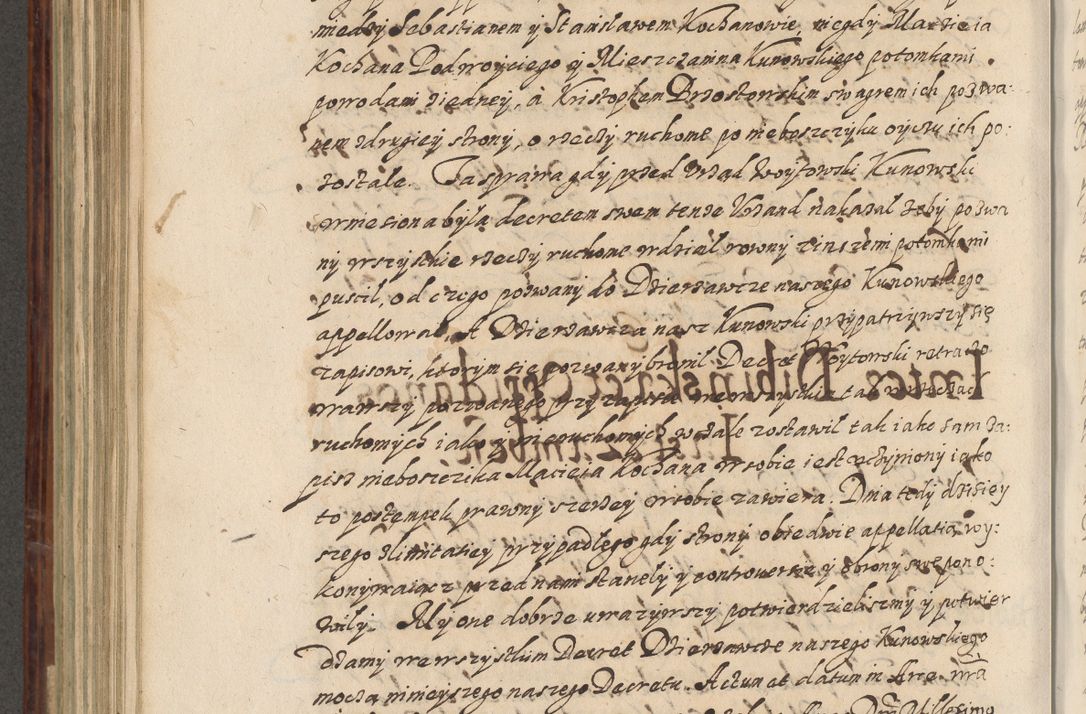 miedzy Sebastianem y Stanisławem Kochanowie, niegdy Macieia
Kochana Podwoyciego y Mieszczanina Kunowskiego potomkami
powodami ziedney, a Kristophem Brzostowskim swagrem ich pozwa:
nem zdrugiey strony, o rzeczy ruchome po nieboszczyku oycu ich po:
zostale. Ta sprawa gdy przed Vrząd Woytowski Kunowski
wniesiona była decretem swem tenze Vrzand nakazal zeby pozwa
ny wszystkie rzeczy ruchome wdzial rowny zinszemi potomkami
puscil, od czego pozwany do Dzierzawcze naszego Kunowskiego
appellowal, A Dzierzawca nasz Kunowski przypatrzywszy się
zapisowi, ktorym się pozwany bronil Decret Woytowski retracto
wawszy pozwanego przy zapisie wewszystkich tak w rzeczach
ruchomych iako y nieruchomych wcale zostawil tak iako sam za:
pis nieboszczika Macieia Kochana w sobie iest vczyniony iako
to postempek prawny szerzey w sobie zawiera. Dnia tedy dzisiey
szego zlimitatiey przypadłego gdy strony obiedwie appellatią wy:
konywaiącz przed nami stanely y controwersie y obrony swe pono:
wily. My one dobrze uwazywszy potwierdzielismy y potwier
dzamy we wszystkim Decret Dzierzawcze naszego Kunowskiego
mocza ninieyszego naszego Decretu. Actum et datum in Arce nra